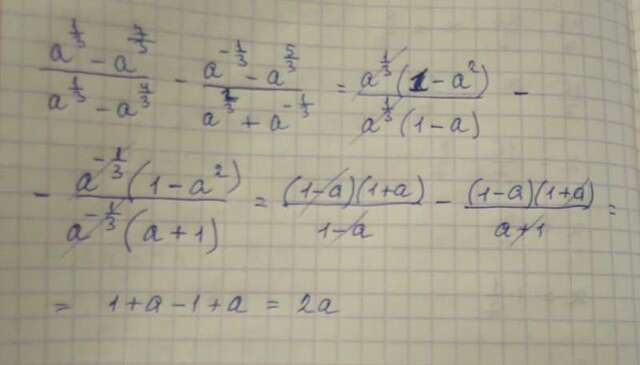 (a^{1/3} - a^{7/3})/(a^{1/3} - a^{4/3}) - (a^{-1/3} - a^{5/3})/(a^{2/3} + a^{-1/3}) = (a^{1/3}(1 - a^2))/(a^{1/3}(1 - a)) -
- (a^{-1/3}(1 - a^2))/(a^{-1/3}(a + 1)) = ((1-a)(1+a))/(1-a) - ((1-a)(1+a))/(a+1) =
= 1+a-1+a = 2a